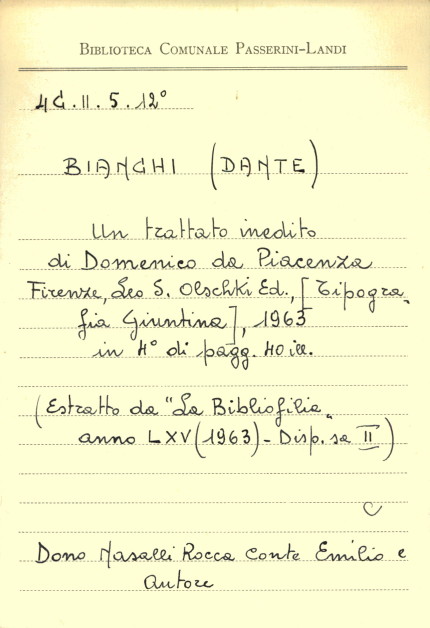 BIBLIOTECA COMUNALE PASSERINI-LANDI
4C.II.5.12°
BIANCHI (DANTE)
Un trattato inedito
di Domenico da Piacenza
Firenze, Leo S. Olschki Ed., [Tipogra-
fia Giuntina], 1963
in 4° di pagg. 40 ill.
(Estratto da "La Bibliofilia„
anno LXV (1963) - Disp.sa II)
C
Dono Nasalli Rocca Conte Emilio e
autore